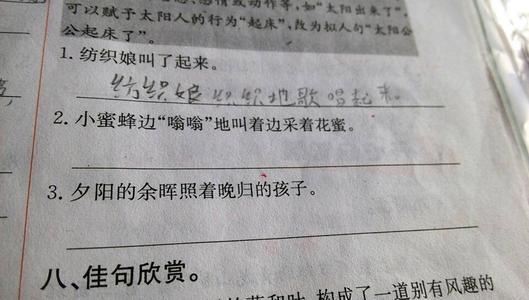 可以赋予太阳人的行为“起床”,改为拟人句“太阳公
公起床了”。
1. 纺织娘叫了起来。
纺织娘织织地歌唱起来。
2. 小蜜蜂边“嗡嗡”地叫着边采着花蜜。
3. 夕阳的余晖照着晚归的孩子。
八、佳句欣赏。
构成了一道别有风趣的